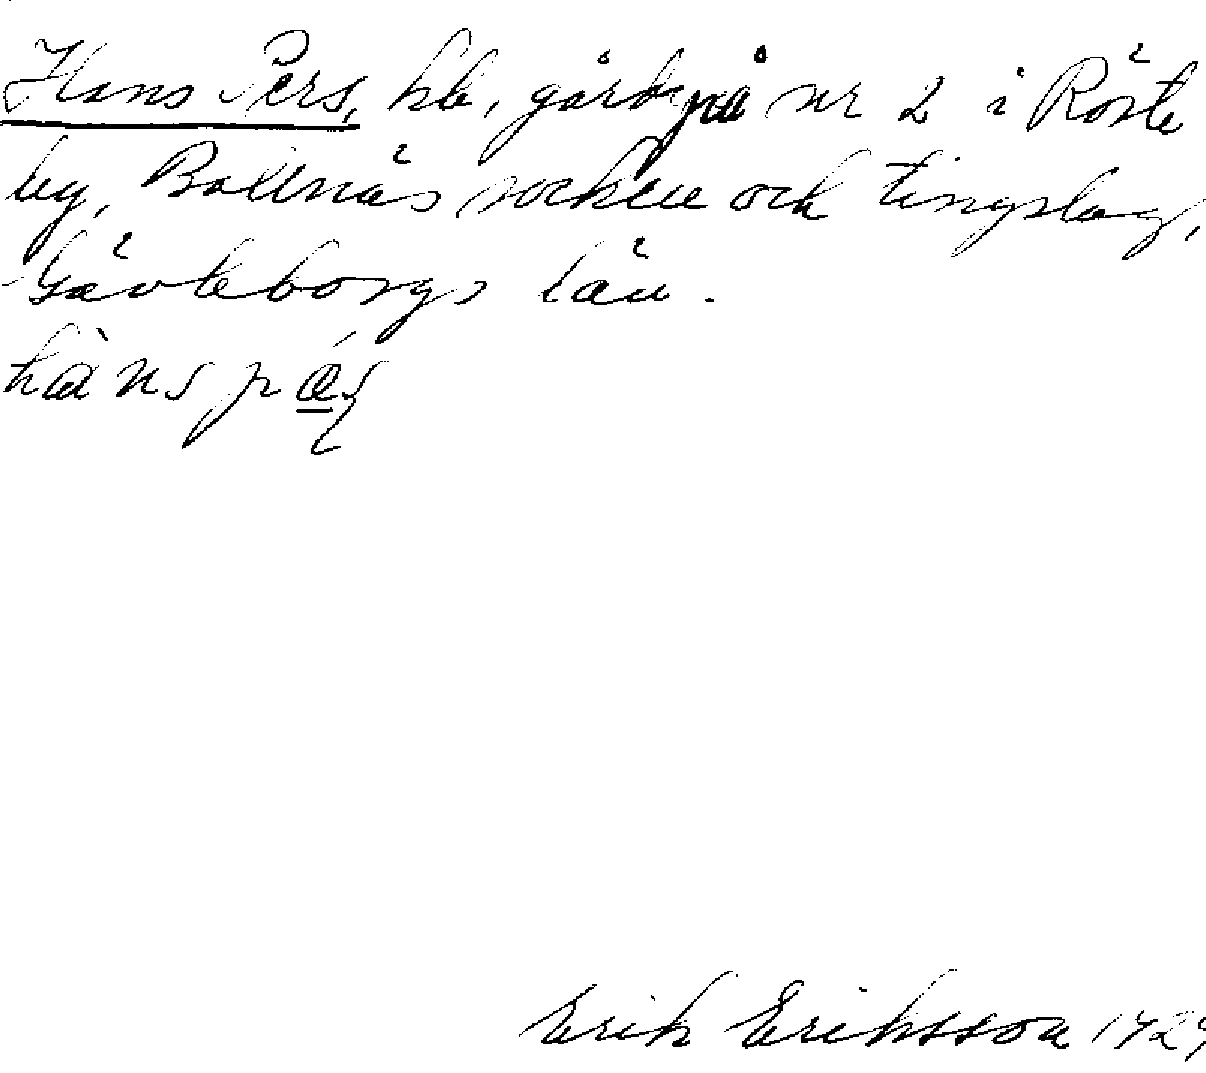 Hans Pers, hb, gård på nr 2 i Röste
by, Bollnäs socken och tingslag,
Gävleborgs län.
Erik Eriksson